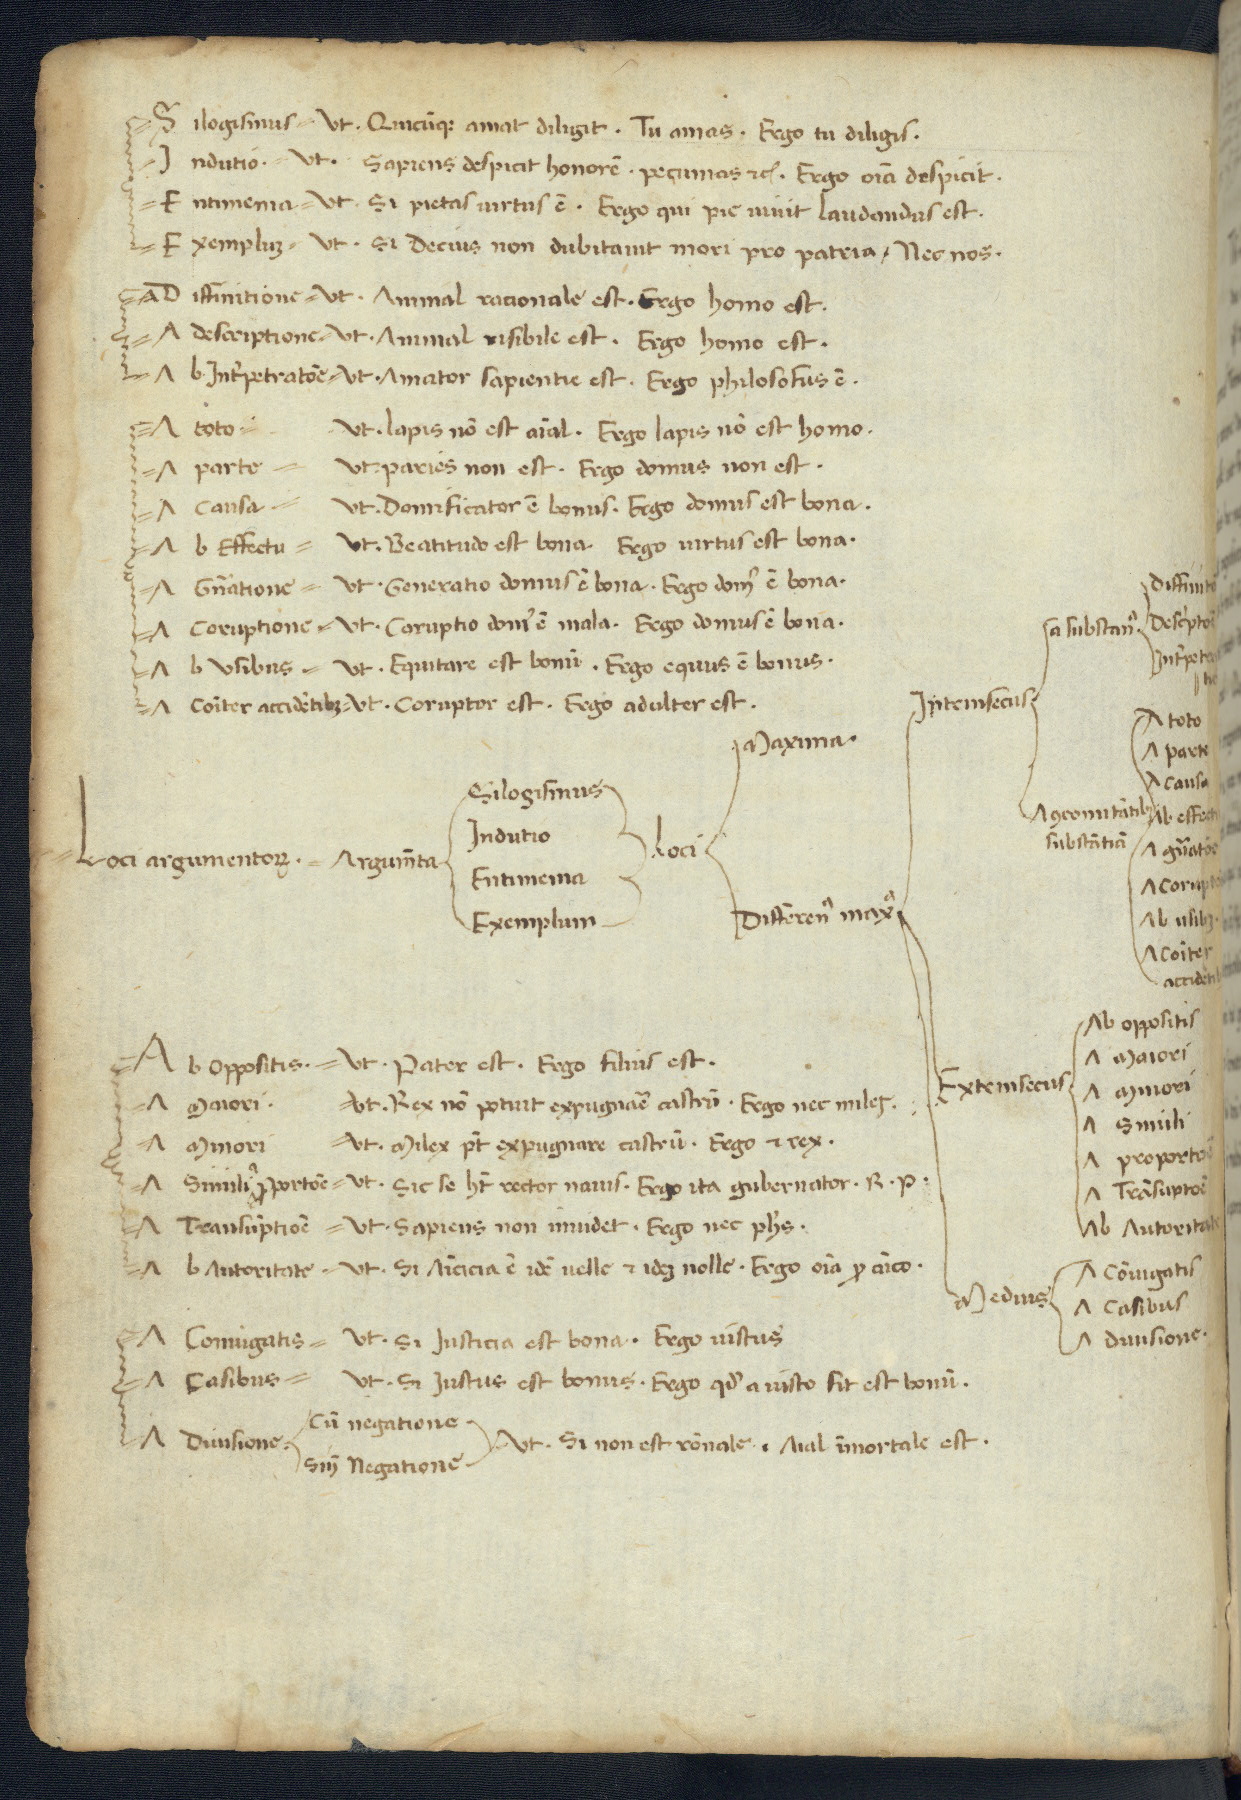 Silogismus = Vt. Quicūqȝ amat diligit. Tu amas. Ergo tu diligis.
Indutio. = Vt. Sapiens despicit honorē. pecunias ⁊c̄. Ergo oīa despicit.
Entimema = Vt. Si pietas uirtus ē. Ergo qui pie uiuit laudandus est.
Exempluȝ = Vt. Si Decius non dubitauit mori pro patria / Nec nos.
A Diffinitione = Vt. Animal racionale est. Ergo homo est.
A descriptione = Vt. Animal risibile est. Ergo homo est.
Ab Int'pretatōe = Vt. Amator sapientie est. Ergo philosofus ē.
A toto = Vt. lapis nō est aīal. Ergo lapis nō est homo.
A parte = Vt. paries non est. Ergo domus non est.
A Causa = Vt. Domificator ē bonus. Ergo domus est bona.
Ab Effectu = Vt. Beatitudo est bona. Ergo uirtus est bona.
A Gn̄atione = Vt. Generatio domus ē bona. Ergo dom9 ē bona.
A Coruptione = Vt. Coruptio dom9 ē mala. Ergo domus ē bona.
Ab Vsibus = Vt. Equitare est bonū. Ergo equus ē bonus.
A Coīter accidētibȝ = Vt. Coruptor est. Ergo adulter est.
Maxima.
Loci argumentoꝝ. = Argum̄ta
Silogismus
Indutio
Entimema
Exemplum
Loci
Differen^a max^a
Intrinsecus
a substan^a.
Diffinitō
Descriptō
Int'pret
A ꝯcomitātibȝ
substātiā
A toto
A parte
A causa
Ab effect
A gn̄atōe
A Corupt
Ab usibȝ.
A Coīter
accidētib
Extrinsecus
Ab oppositis
A Maiori
A Minori
A Simili
A proportōe
A Trāsuptōe
Ab Autoritate
Medius
A Cōiugatis
A Casibus
A Diuisione.
Ab Oppositis. = Vt. Pater est. Ergo filius est.
A Maiori. Vt. Rex nō potuit expugnare castrū. Ergo nec miles.
A Minori Vt. Milex pt̄ expugnare castrū. Ergo ⁊ rex.
A Simili^a ꝓportōe = Vt. Sic se ht̄ rector nauis. Ergo ita gubernator. R. P.
A Transūptioē = Vt. Sapiens non inuidet. Ergo nec ph̄s.
Ab Autoritate = Vt. Si Amicicia ē idē uelle ⁊ ideȝ nolle. Ergo oīa ꝓ amico.
A Coniugatis = Vt. Si Iusticia est bona. Ergo iustus
A Casibus = Vt. Si Iustus est bonus. Ergo qd' a iusto fit est bonū.
A Diuisione
Cū negatione
Sin̄ Negatione
Vt. Si non est rōnale. Aial īmortale est.